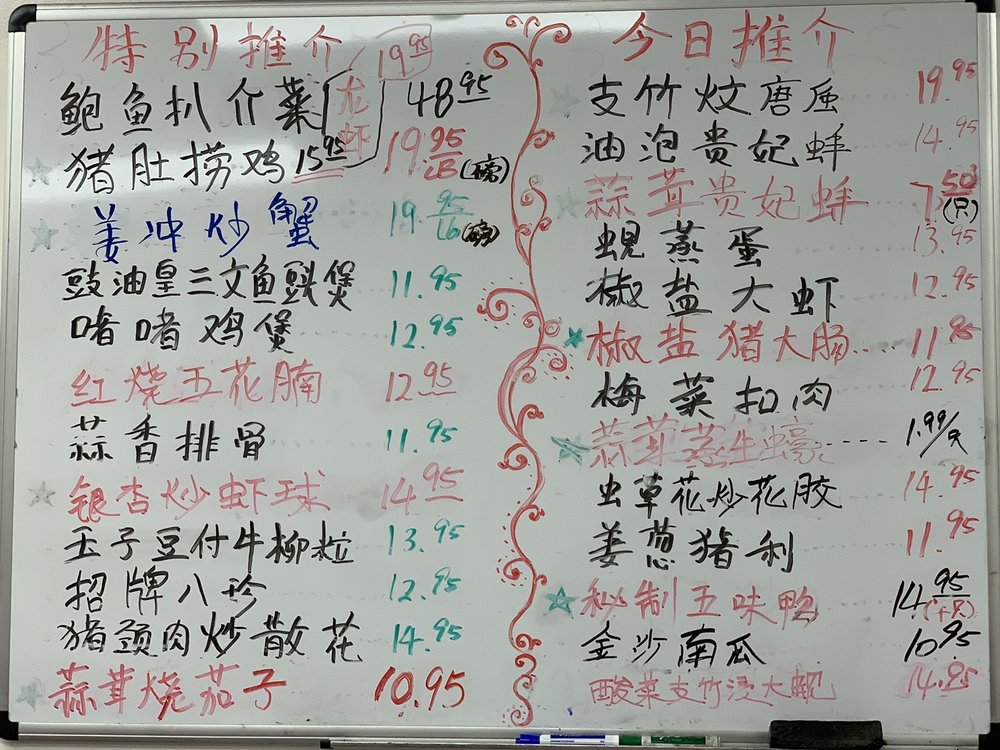 特别推介
鲍鱼扒介菜 48.95
龙虾 19.95
猪肚捞鸡 15.95 19.95/LB(磅)
姜冲炒蟹 19.95/LB(磅)
豉油皇三文鱼頭煲 11.95
啫啫鸡煲 12.95
红烧五花腩 12.95
蒜香排骨 11.95
银杏炒虾球 14.95
玉子豆付牛柳粒 13.95
招牌八珍 12.95
猪颈肉炒散花 14.95
蒜茸烧茄子 10.95
今日推介
支竹炆唐虱 19.95
油泡贵妃蚌 14.95
蒜茸贵妃蚌 7.50(只)
蚬蒸蛋 13.95
椒盐大虾 12.95
椒盐猪大肠 11.95
梅菜扣肉 12.95
蒜茸蒸生蠔 1.99/只
虫草花炒花胶 14.95
姜葱猪利 11.95
秘制五味鸭 14.95
金沙南瓜 10.95
酸菜支竹浸大蚬 14.95